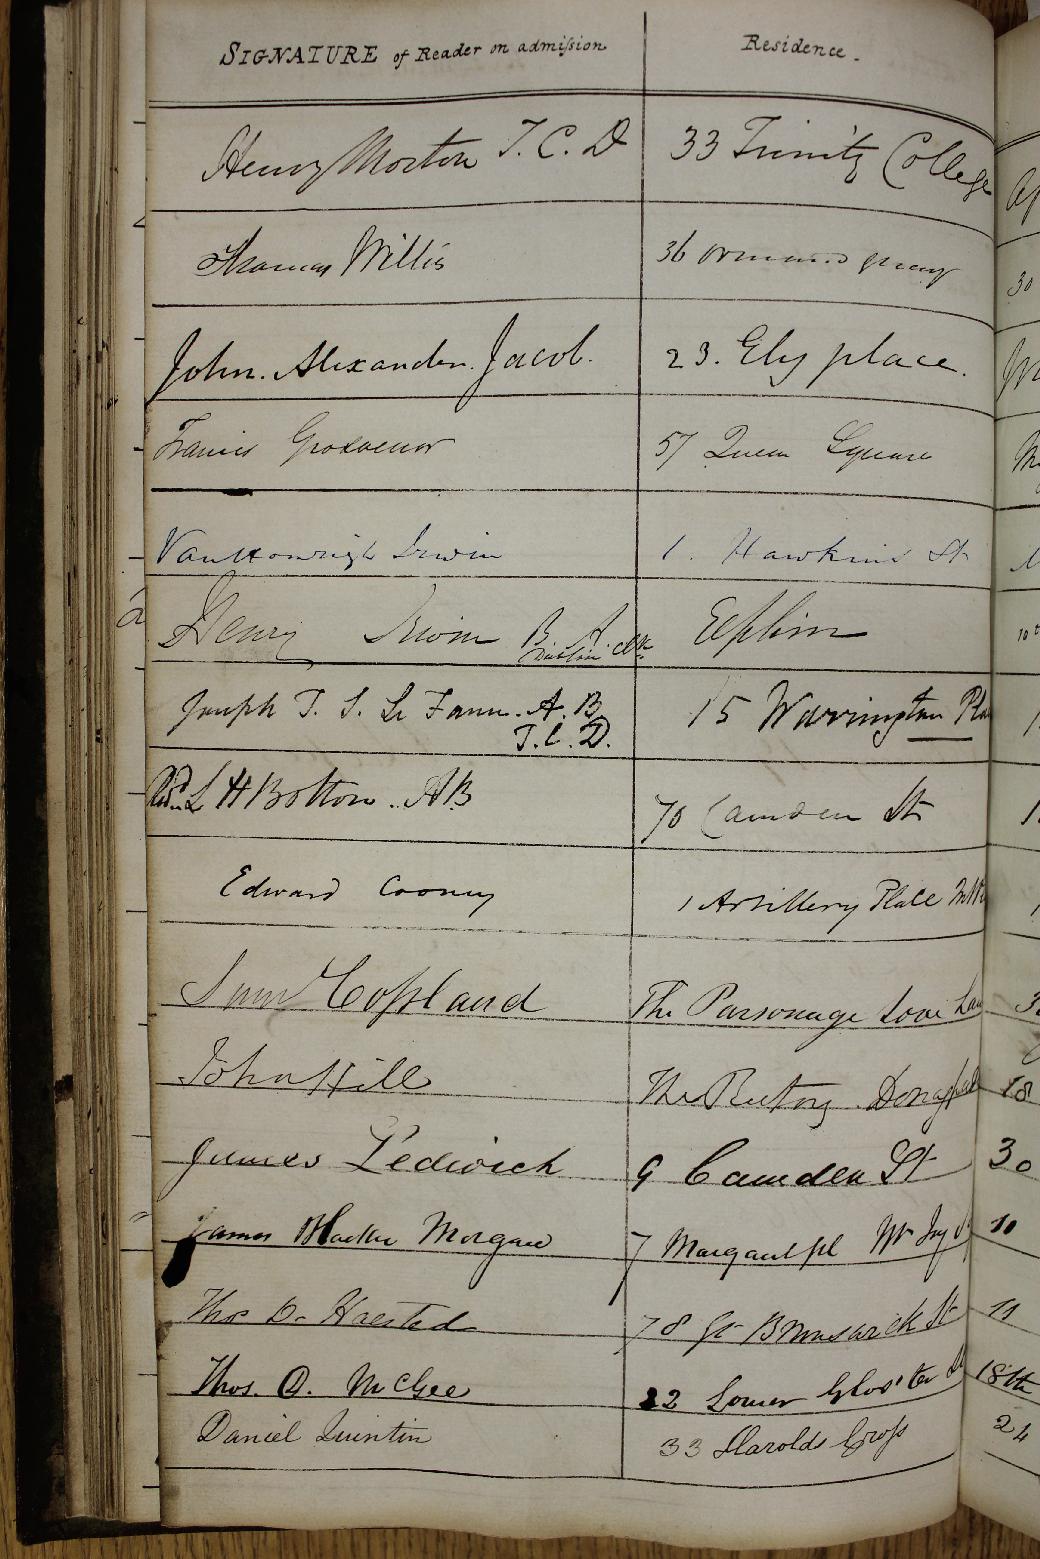 SIGNATURE of Reader on admission Residence.
Henry Morton T.C.D 33 Trinity College
Thomas Willis 36 Ormond quay
John. Alexander. Jacob. 23. Ely place.
Francis Grosvenor 57 Queen Square
Irwin 1. Hawkins St
Henry Irwin B A
Dublin
Joseph T. S. Le Fanu. A. B 15 Warrington
T. C. D.
L H Bolton .. AB 70 Camden St
Edward Cooney 1 Artillery Place
Copland The Parsonage
John Hill The Rectory
James Ledwich 9 Camden St
James Morgan 7 Margaret pl
Thos D. Halsted 78 Gt Brunswick St
Thos. D. McGee 22 Lower Glos'ter
Daniel Quintin 33 Harolds Cross
30
10
18
30
10
11
18th
24